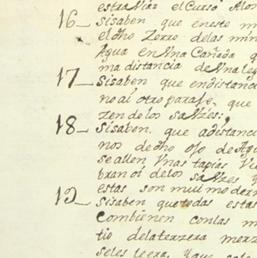 estra Niaz el Curso Alon
16 Si saben que en este m
el dho Zorro de las min
Agua en Vna Cañada q
ma distancia de Vna leg
17 Si saben que en distanc
no al otro paraje, que
zen de los Salzes;
18 Si saben, que a distanc
nos de dho ojo de Agu
se allen Vnas tapias, Vie
bran oi de los Salzes y
estas son mui moderna
19 Si saben que todas estas
Combienen con las m
tio de la terzera merz
se les leera, y que